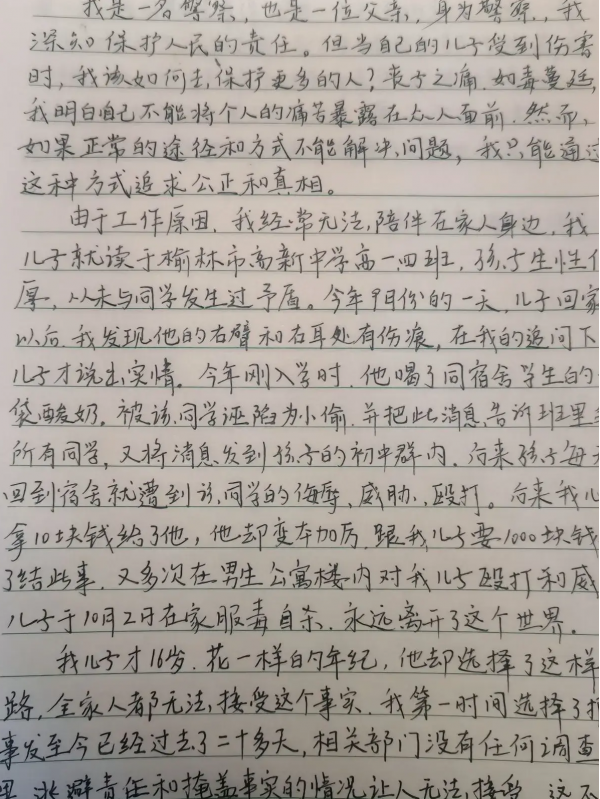 我是一名警察,也是一位父亲,身为警察,我
深知保护人民的责任。但当自己的儿子受到伤害
时,我该如何去保护更多的人?丧子之痛.如毒蔓延,
我明白自己不能将个人的痛苦暴露在众人面前.然而,
如果正常的途径和方式不能解决问题,我只能通过
这种方式追求公正和真相。
由于工作原因.我经常无法陪伴在家人身边,我
儿子就读于榆林市高新中学高一四班,孩子生性
厚,从未与同学发生过矛盾。今年9月份的一天,儿子回家
以后.我发现他的右臂和右耳处有伤痕,在我的追问下
儿子才说出实情。今年刚入学时.他喝了同宿舍学生的
袋酸奶.被该同学诬陷为小偷.并把此消息告诉班里
所有同学,又将消息发到孩子的初中群内.后来孩子每天
回到宿舍就遭到该同学的侮辱、威胁、殴打。后来我儿
拿10块钱给了他,他却变本加厉.跟我儿子要1000块钱
了结此事.又多次在男生公寓楼内对我儿子殴打和威
儿子于10月2日在家服毒自杀.永远离开了这个世界.
我儿子才16岁.花一样的年纪,他却选择了这样
路,全家人都无法接受这个事实.我第一时间选择了
事发至今已经过去了二十多天,相关部门没有任何调查
逃避责任和掩盖事实的情况让人无法接受.这不